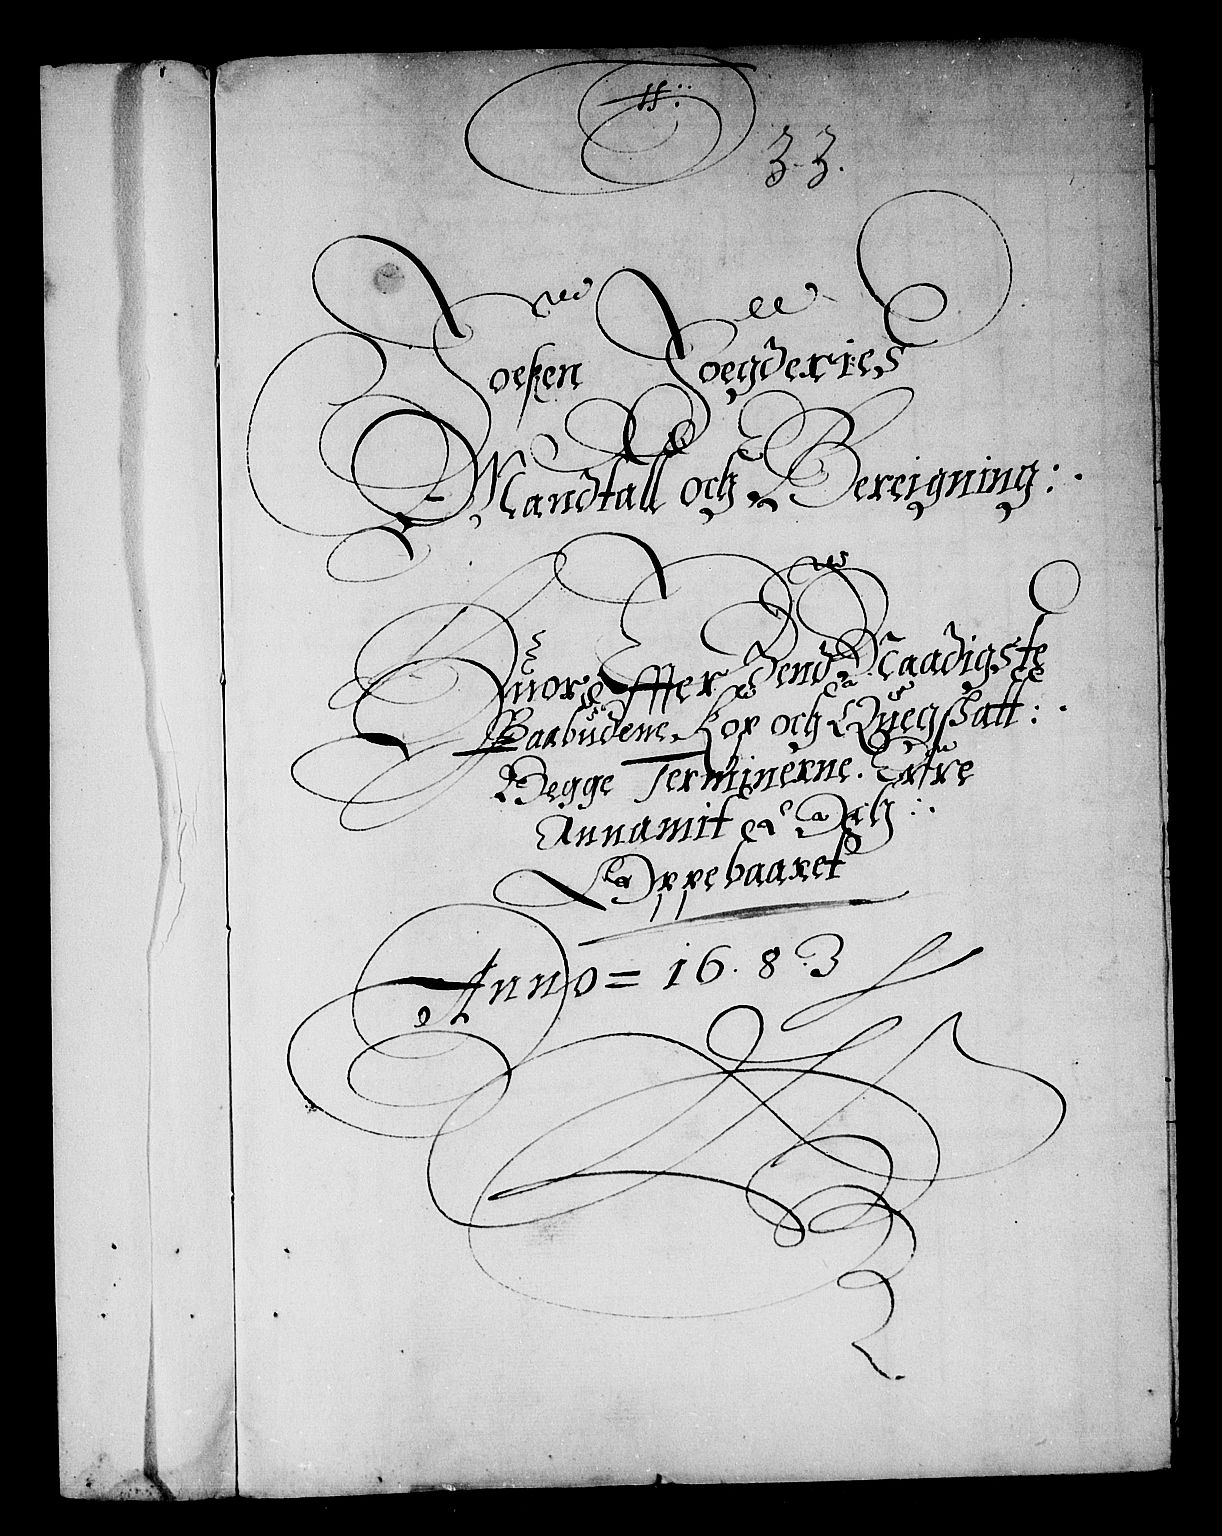 H:
33.
Foeßen Foegderies
Mandtall och Bereigning:
Huor Effter dend Naadigste
Paabudene Kop och Quegskatt:
Begge Terminerne. Ere
Annamit Och
Oppebaaret
Anno = 1683